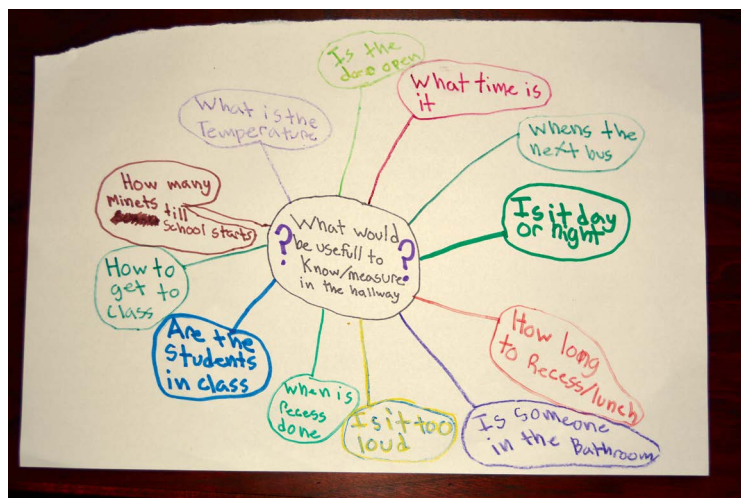 What would
be usefull to
Know/measure
in the hallway
? ?
Is the
door open
What time is
it
Whens the
next bus
Is it day
or night
How long
to Recess/lunch
Is Someone
in the Bathroom
Is it too
loud
when is
Recess
done
Are the
Students
in class
How to
get to
class
How many
Minets
till
School starts
What is the
Temperature